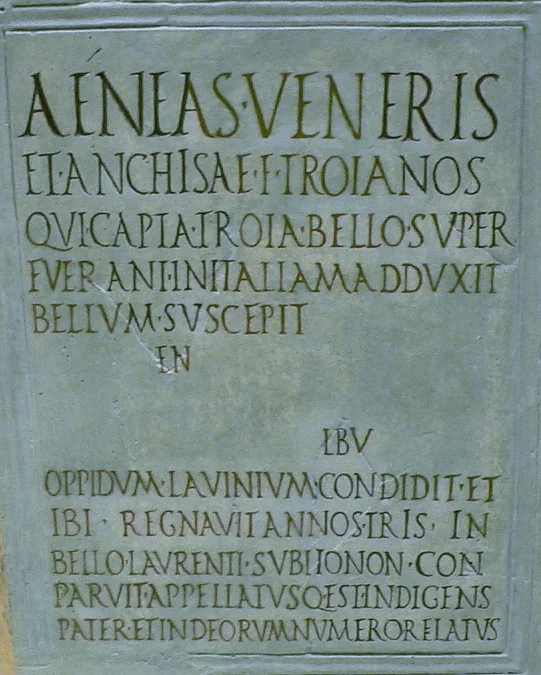 AÉNEAS·VENERIS
ET·ANCHISAE·F·TROIANOS
QVI CAPTA·TROIA·BELLO·SVPER
FVERANT·IN ITALIAM ADDVXIT
BELLVM·SVSCEPIT
EN
LBV
OPPIDVM·LAVINIVM·CONDIDIT·ET
IBI · REGNAVIT ANNOS·TRIS · IN
BELLO·LAVRENTI·SVBITO NON·CON
PARVIT·APPELLATVSQ EST·INDIGENS
PATER·ET IN DEORVM NVMERO RELATVS